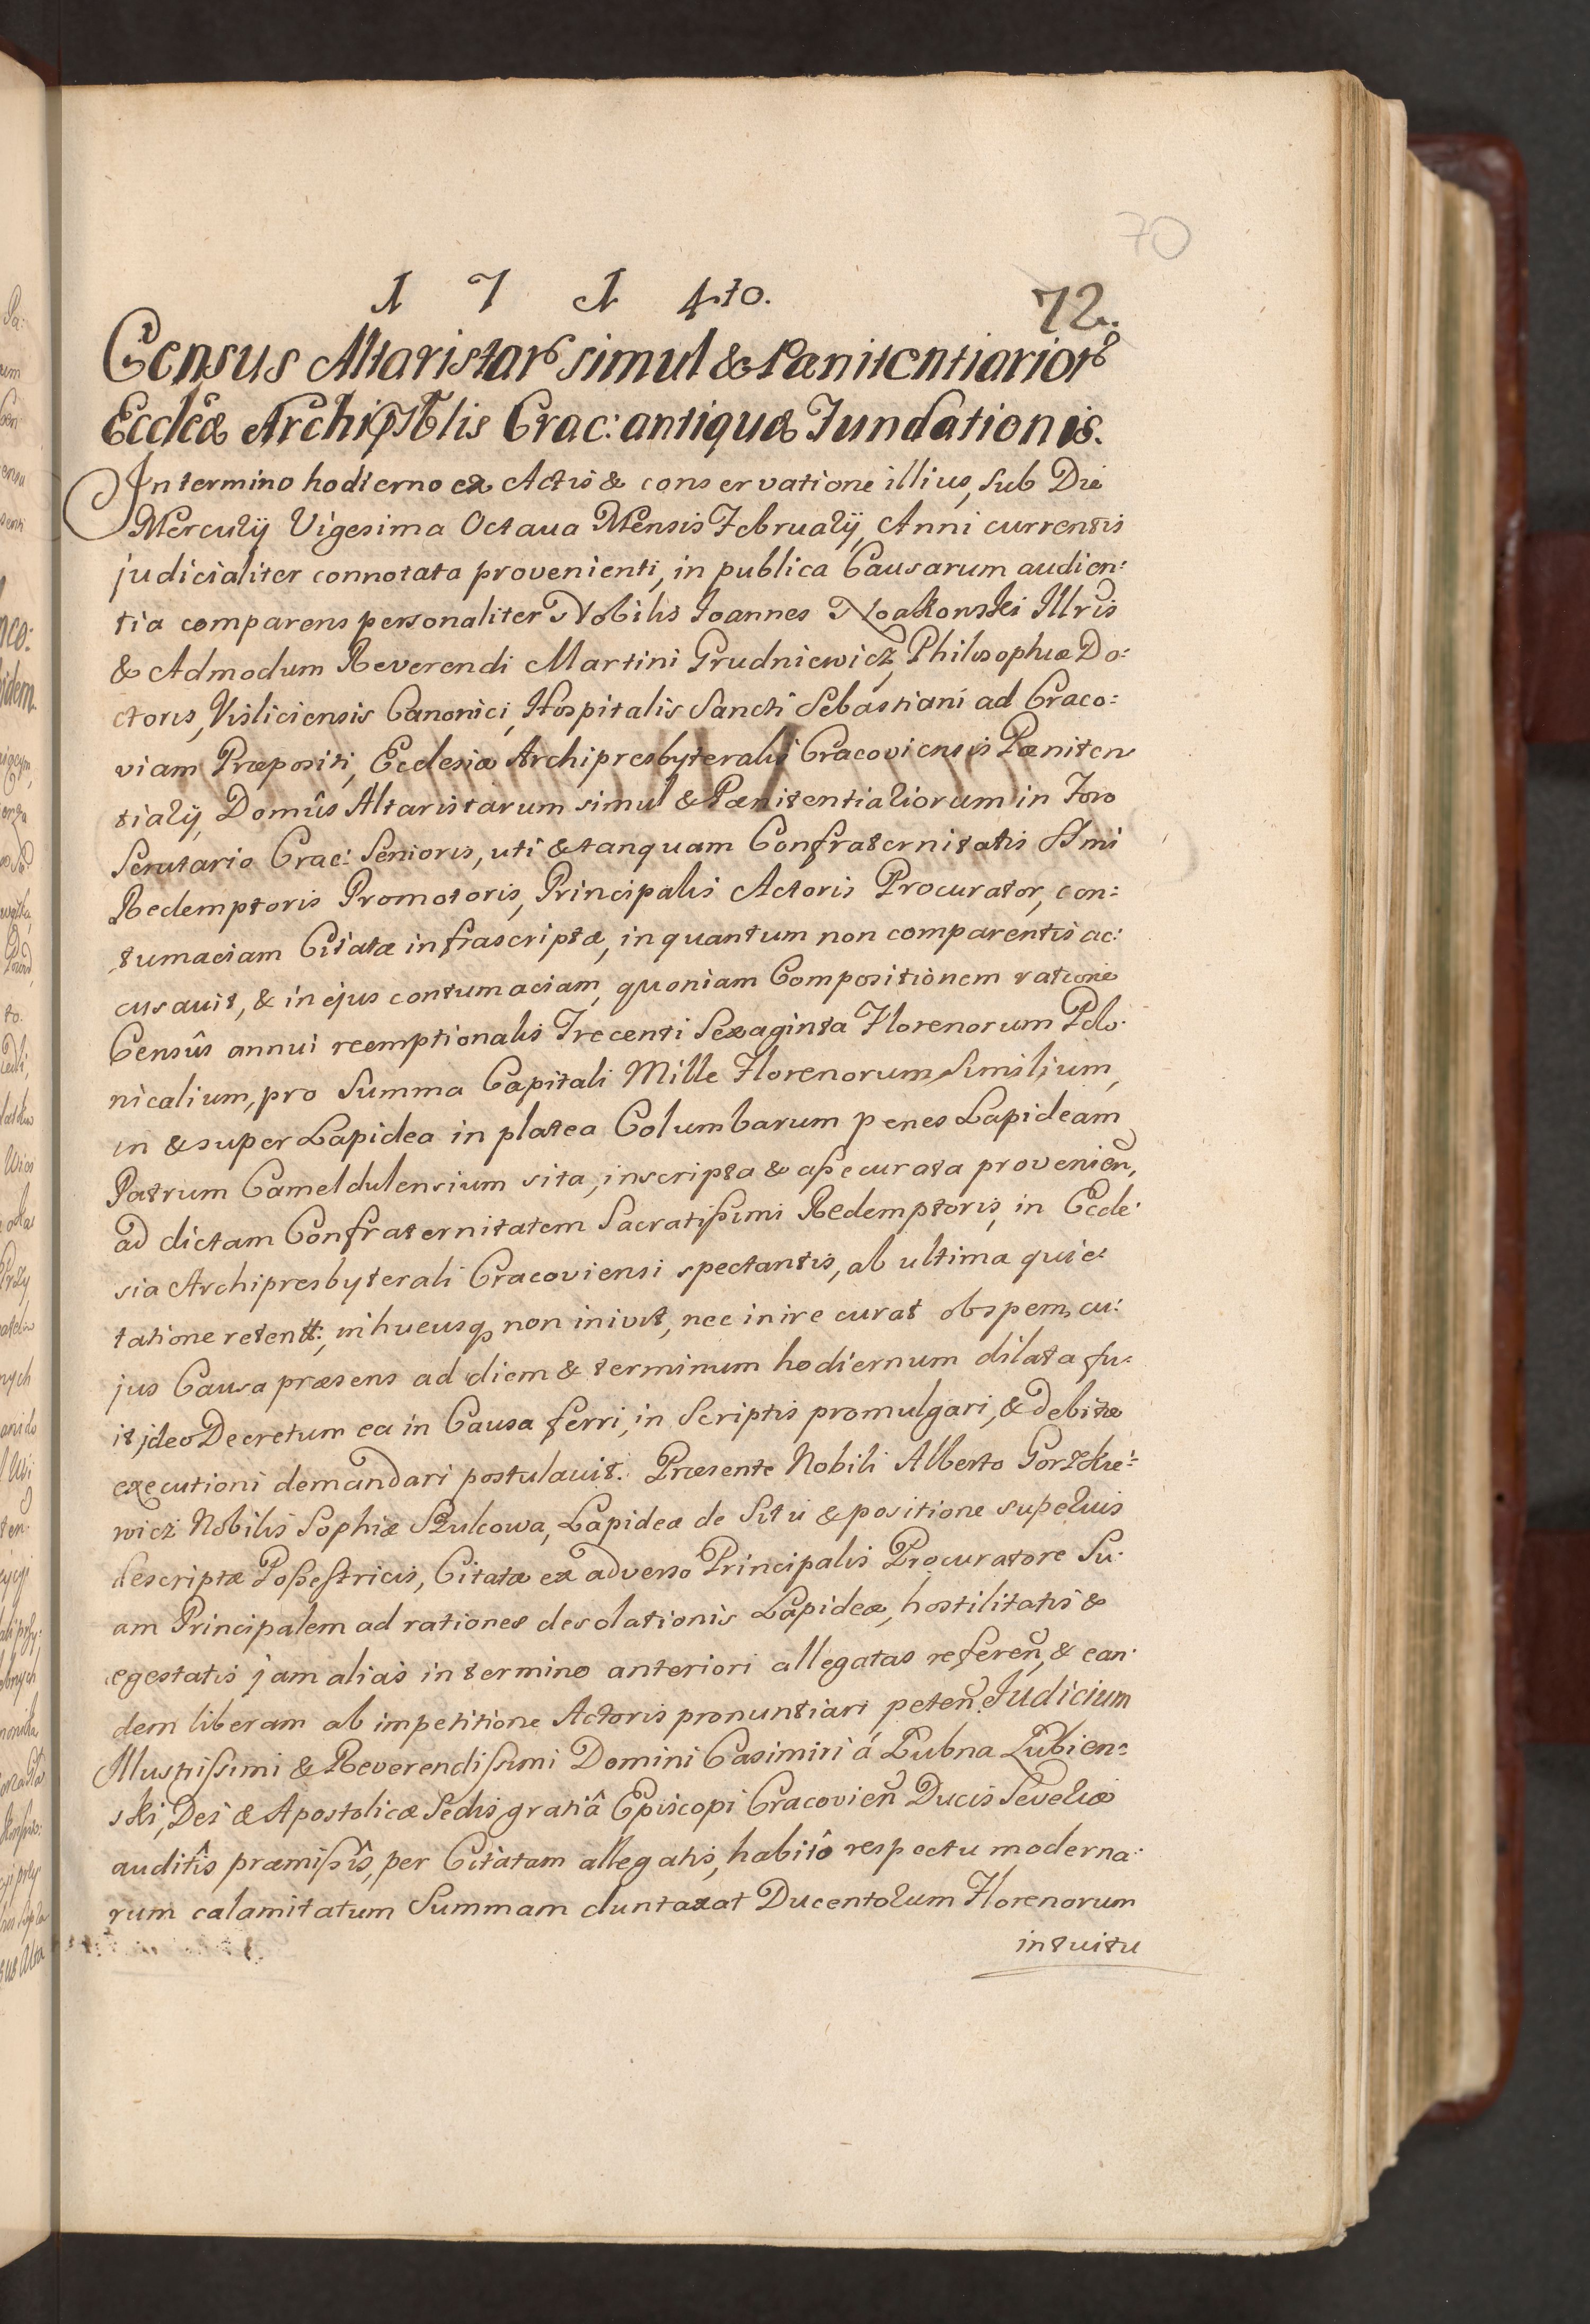 70
1 7 1 4to.
72.
Census Altaristar simul & Pænitentiarior
Ecclĉæ Archipr̃blis Crac: antiquæ Fundationis.
In termino hodierno ex Actis & conservatione illius, sub Die
Mercurij Vigesima Octaua Mensis Februarij, Anni currentis
judicialiter connotata provenienti, in publica Causarum audien:
tia comparens personaliter Nobilis Joannes Noakowski Illris
& Admodum Reverendi Martini Grudniewicz, Philosophiæ Do:
ctoris, Visliciensis Canonici, Hospitalis Sancti Sebastiani ad Craco:
viam Præpositi, Ecclesiæ Archipresbyteralis Cracoviensis Pæniten
tiarij, Domûs Altaristarum simul & Pænitentiariorum in Foro
Scrutario Crac: Senioris, uti & tanquam Confraternitatis SSmi
Redemptoris Promotoris, Principalis Actoris Procurator, con:
tumaciam Citatæ infrascriptæ, inquantum non comparentis ac:
cusauit, & in ejus contumaciam, quoniam Compositionem ratione
Censûs annui reemptionalis Trecenti Sexaginta Florenorum Polo:
nicalium, pro Summa Capitali Mille Florenorum Similium,
in & super Lapidea in platea Columbarum penes Lapideam
Patrum Cameldulensium sita, inscripta & aßecurata provenien̄,
ad dictam Confraternitatem Sacratißimi Redemptoris, in Eccle:
sia Archipresbyterali Cracoviensi spectantis, ab ultima quie:
tatione retentt:, inhucusq, non inivit, nec inire curat ob spem, cu:
jus Causa præsens ad diem & terminum hodiernum dilata fu:
it, ideo Decretum ea in Causa ferri, in Scriptis promulgari, & debitæ
executioni demandari postulauit. Præsente Nobili Alberto Gorzkie:
wicz Nobilis Sophiæ Szulcowa, Lapideæ de Situ & positione superius
descriptæ Poßeßtricis, Citatæ ex adverso Principalis Procuratore Su:
am Principalem ad rationes desolationis Lapideæ, hostilitatis &
egestatis jam alias in termino anteriori allegatas referen̄, & ean:
dem liberam ab impetitione Actoris pronuntiari peten̄. Judicium
Illustrißimi & Reverendißimi Domini Casimiri á Łubna Łubien:
ski, Dei & Apostolicæ Sedis gratiâ Episcopi Cracovien̄ Ducis Severiæ
auditîs præmißîs, per Citatam allegatis, habitô respectu moderna:
rum calamitatum Summam duntaxat Ducentorum Florenorum
intuitu